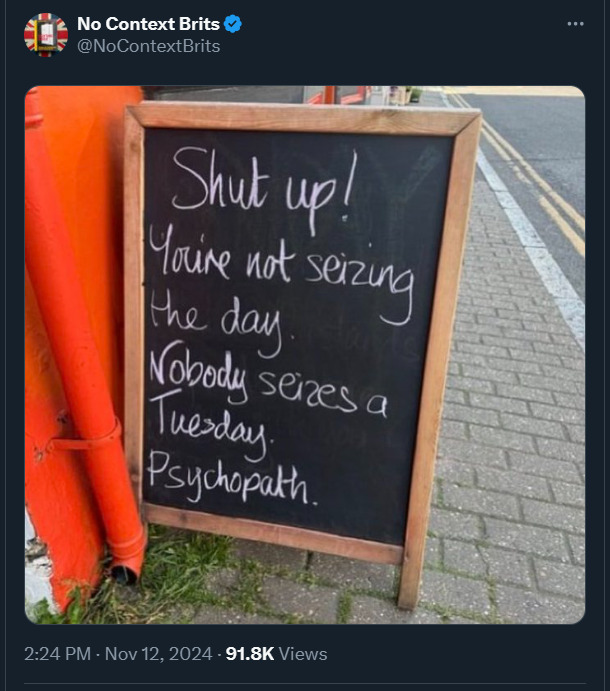 No Context Brits
@NoContextBrits
Shut up!
You're not seizing
the day.
Nobody seizes a
Tuesday.
Psychopath.
2:24 PM · Nov 12, 2024 · 91.8K Views